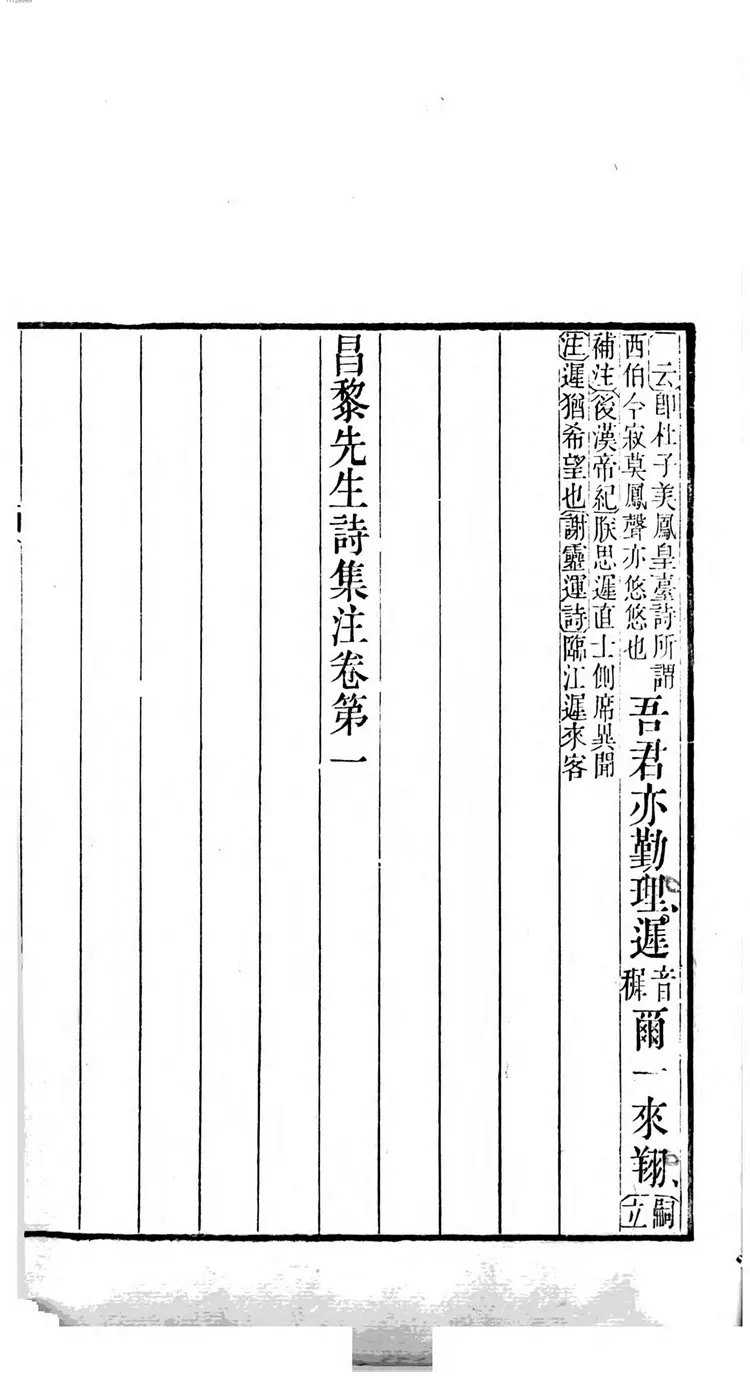 一云即杜子美鳳皇臺詩所謂
西伯今寂莫鳳聲亦悠悠也
吾君亦勤理遲
音
穉
爾一來翔
嗣
立
補注後漢帝紀朕思遲直士側席異聞
注遲猶希望也謝靈運詩臨江遲來客
昌黎先生詩集注卷第一